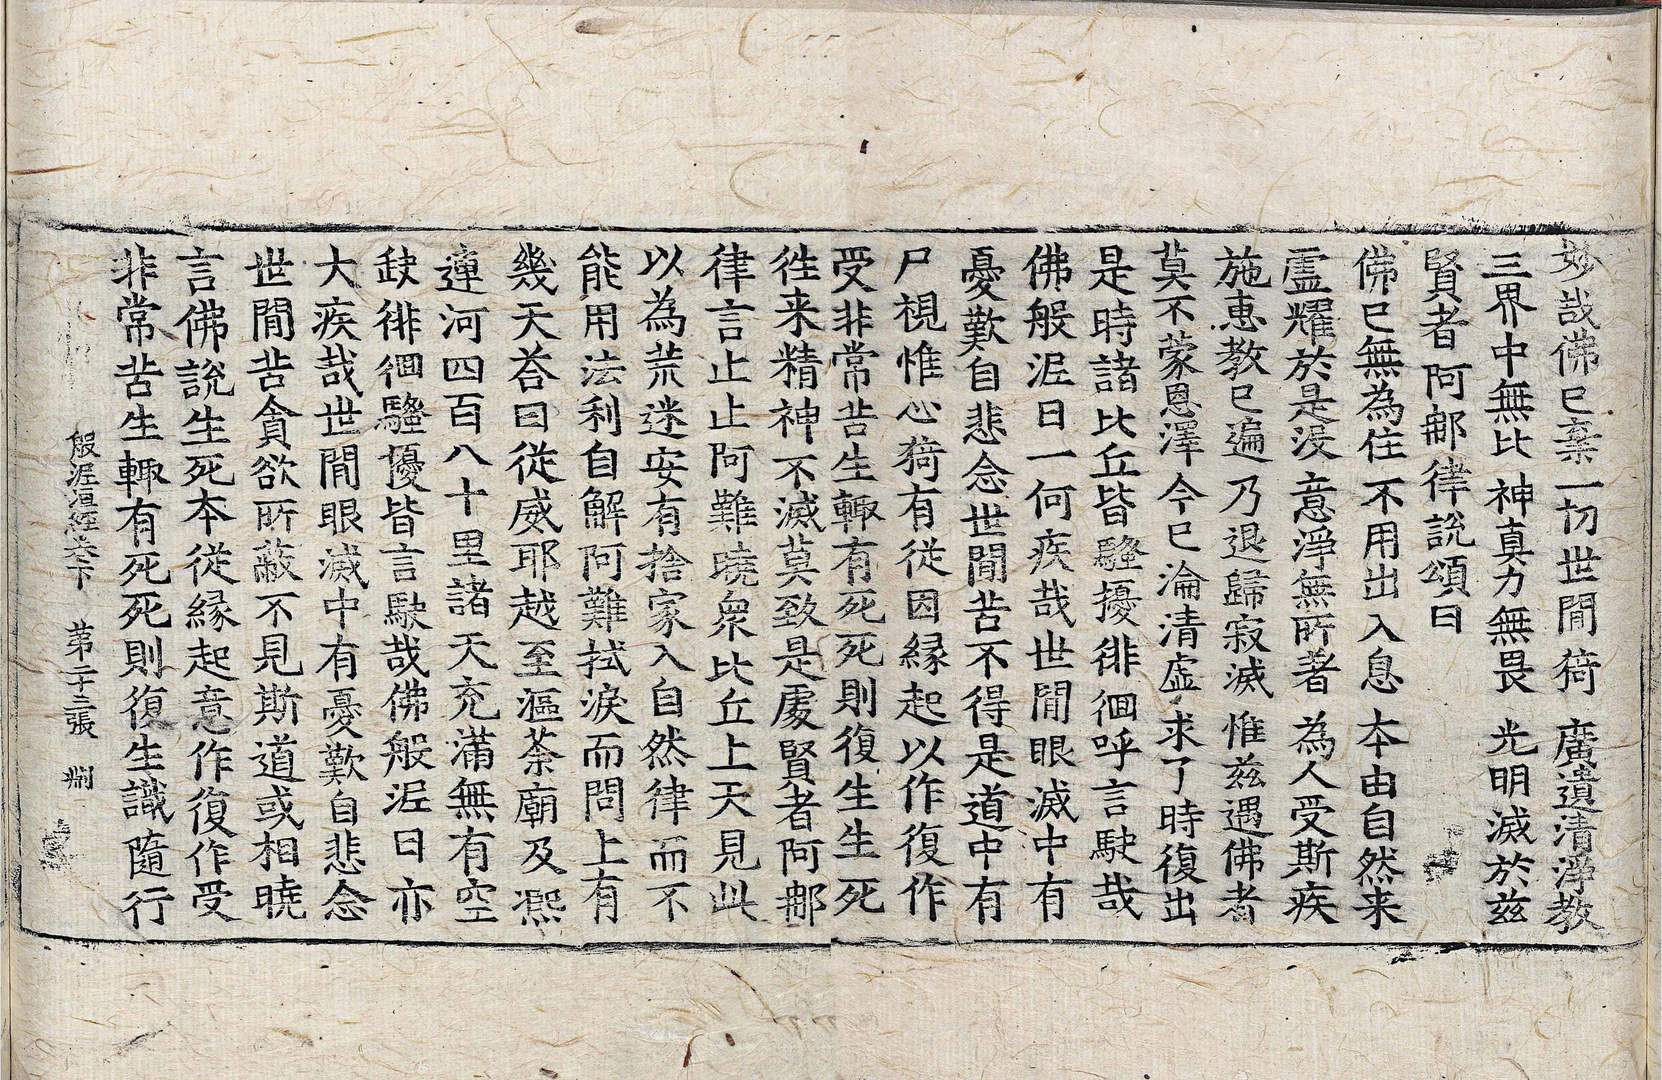 妙哉佛已棄一切世間猗 廣遺清淨教
三界中無比 神真力無畏 光明滅於玆
賢者阿那律說頌曰
佛已無為住 不用出入息 本由自然来
虛耀於是没 意淨無所著 為人受斯疾
施惠教已遍 乃退歸寂滅 惟玆遇佛者
莫不蒙恩澤 今已淪清虛 求了時復出
是時諸比丘皆騷擾徘徊呼言駛哉
佛般泥曰一何疾哉世間眼滅中有
憂歎自悲念世間苦不得是道中有
尸視惟心猗有從因緣起以作復作
受非常苦生輙有死死則復生生死
徃来精神不滅莫致是處賢者阿那
律言止止阿難曉衆比丘上天見此
以為荒迷安有捨家入自然律而不
能用法利自解阿難拭淚而問上有
幾天荅曰從威耶越至漚荼廟及熈
連河四百八十里諸天充滿無有空
缺徘徊騷擾皆言駛哉佛般泥曰亦
大疾哉世間眼滅中有憂歎自悲念
世間苦貪欲所蔽不見斯道或相曉
言佛說生死本從緣起意作復作受
非常苦生輙有死死則復生識隨行
般泥洹經卷下 第二十三張 㓮